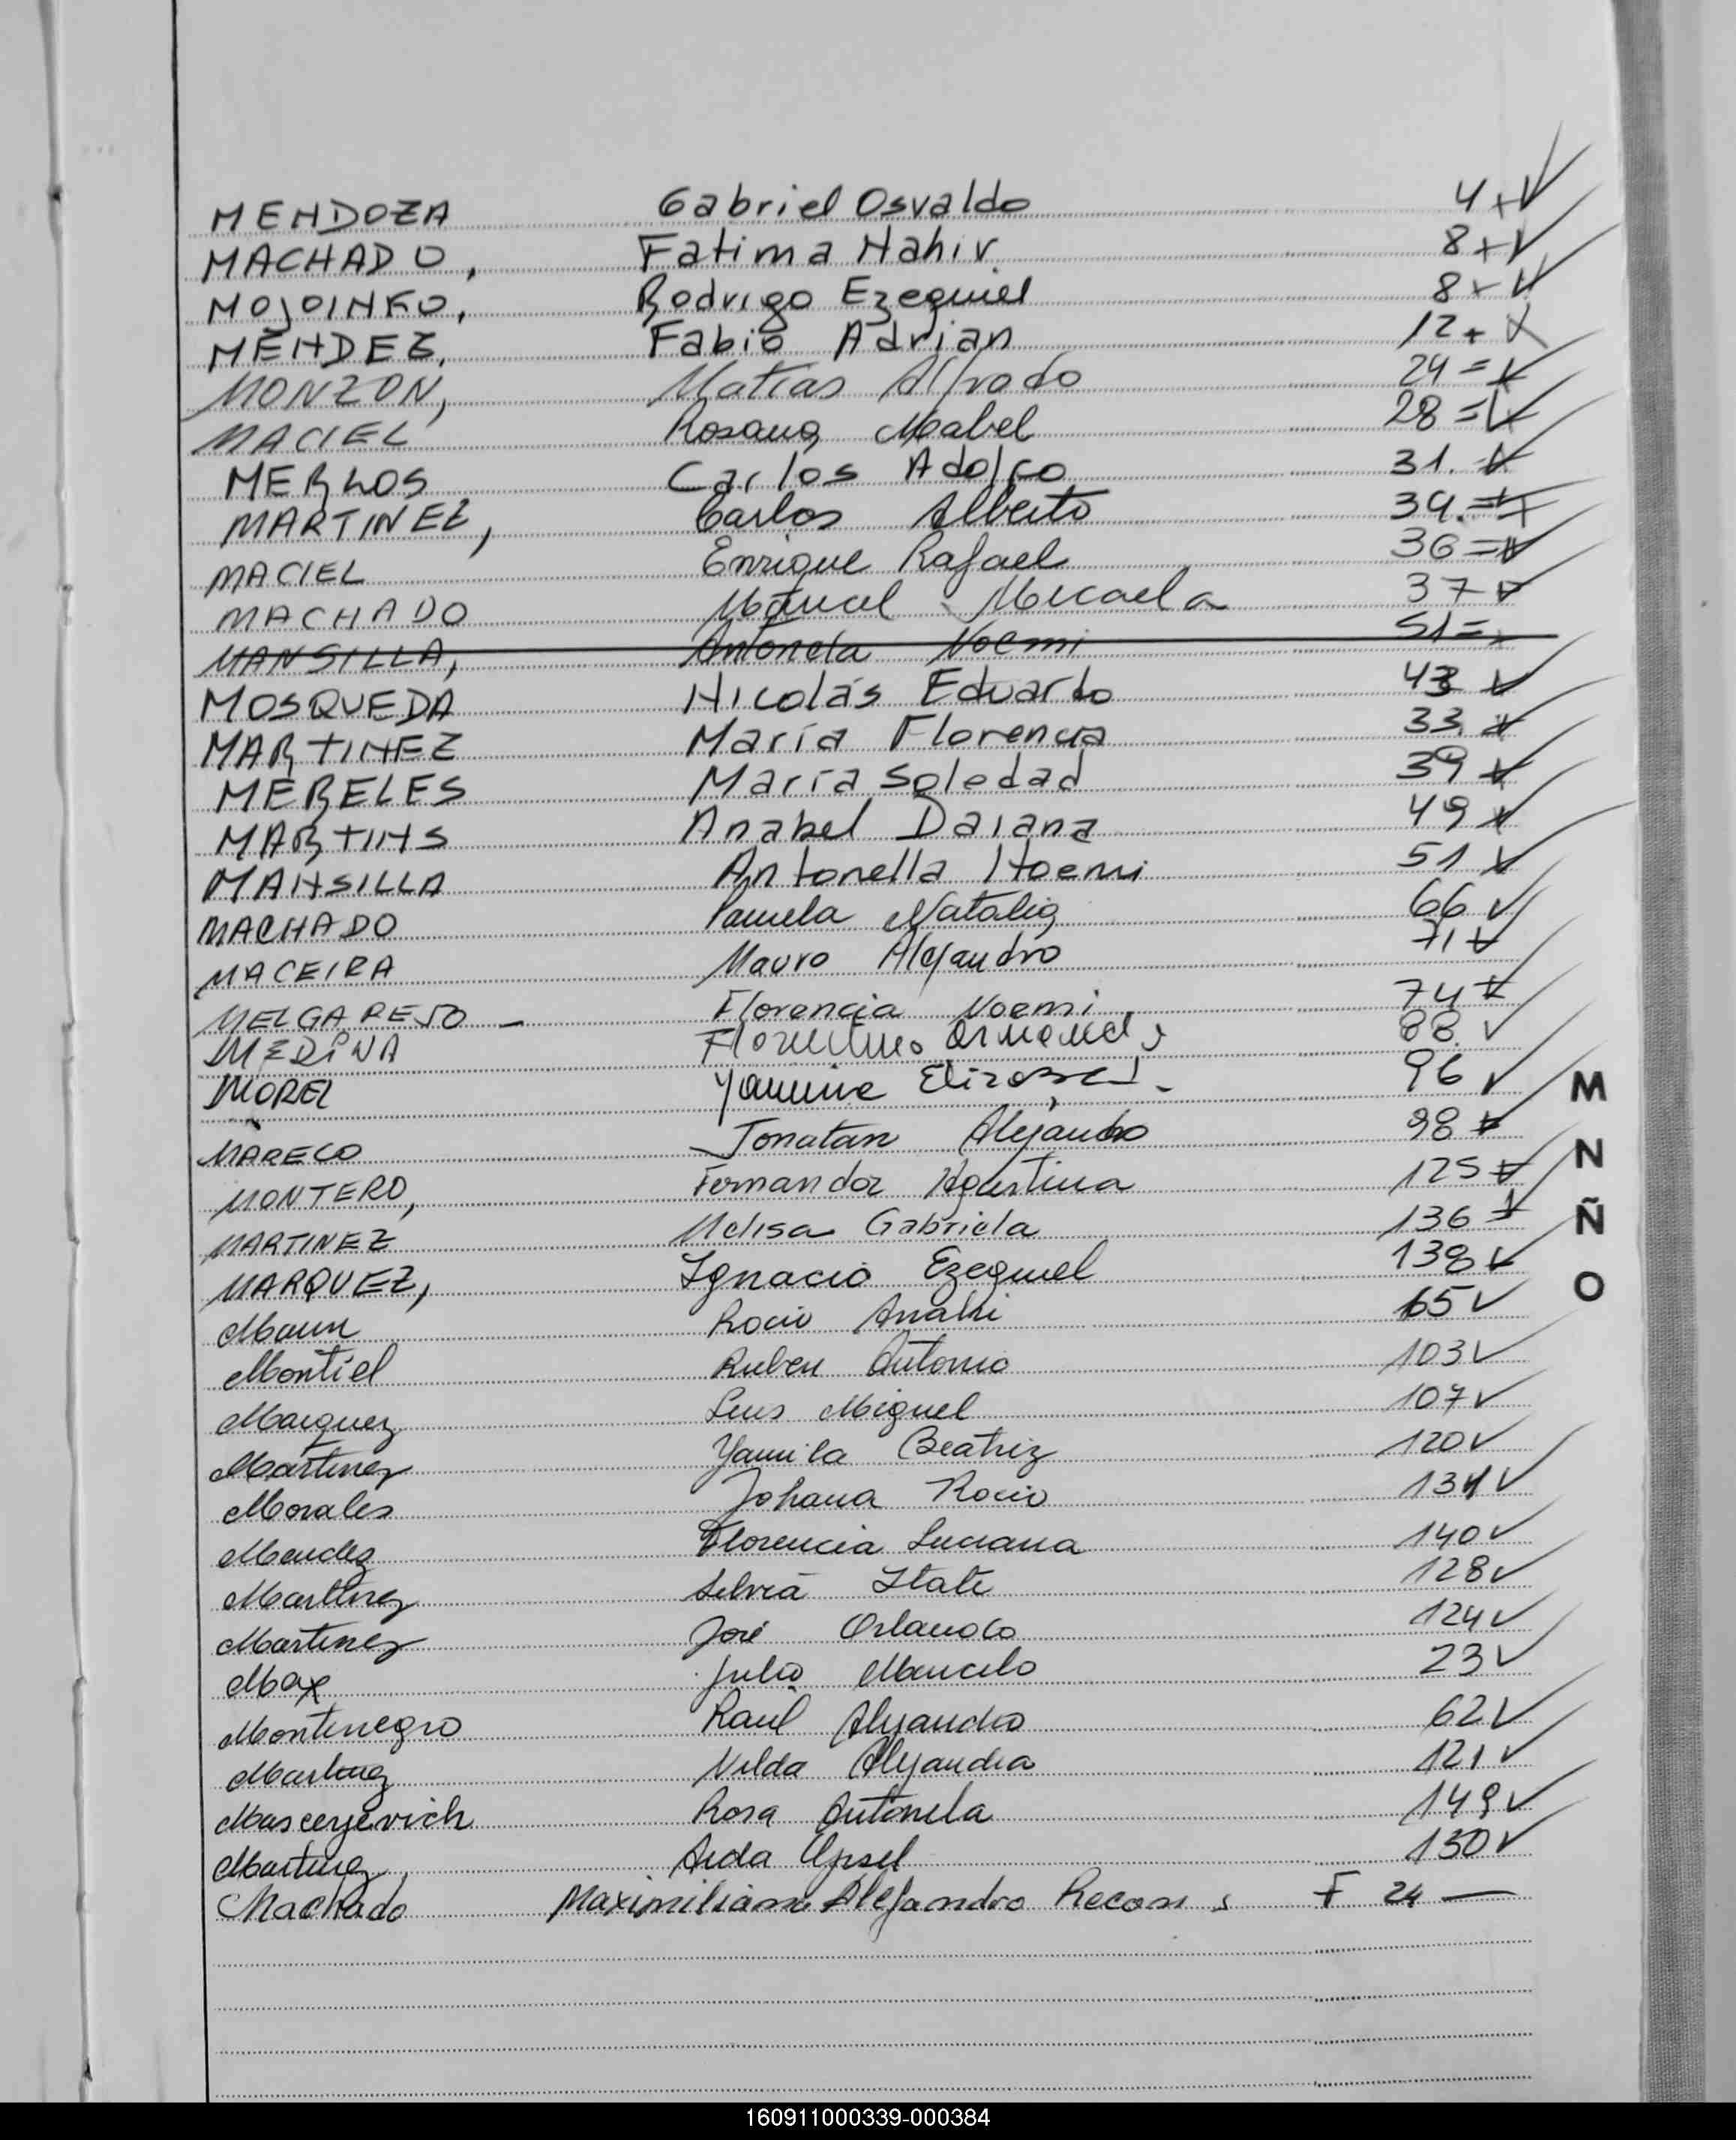 MENDOZA Gabriel Osvaldo 4
MACHADO, Fatima Nahir 8
MOJOINKO, Rodrigo Ezequiel 8
MENDEZ, Fabio Adrian 12
MONZON, Matías Alfredo 24
MACIEL Rosana Mabel 28
MERLOS Carlos Adolfo 31
MARTINEZ, Carlos Alberto 34
MACIEL Enrique Rafael 36
MACHADO Micaela 37
MANSILLA, Antonela Noemi 51
MOSQUEDA Nicolás Eduardo 43
MARTINEZ María Florencia 33
MERELES María Soledad 39
MARTINS Anabel Daiana 49
MANSILLA Antonella Noemi 51
MACHADO Pamela Natalia 66
MACEIRA Mauro Alejandro 71
MELGAREJO - Florencia Noemi 74
MEDINA Florentino Armando 88
MOREL 96
MARECO Jonatan Alejandro 98
MONTERO, Fernandoz Agustina 125
MARTINEZ Melisa Gabriela 136
MARQUEZ, Ignacio Ezequiel 138
Rocio Anahi 65
Montiel Ruben Antonio 103
Marquez Luis Miguel 107
Martinez Yamila Beatriz 120
Morales Johana Rocio 131
Mendez Florencia Luciana 140
Martinez Silvia Itati 128
Martinez José Orlando 124
Max Julio Marcelo 23
Montenegro Raul Alejandro 62
Martinez Nilda Alejandra 121
Rosa Antonela 149
Martinez, Aida 130
Machado Maximiliano Alejandro F 24 —
M
N
Ñ
O
160911000339-000384